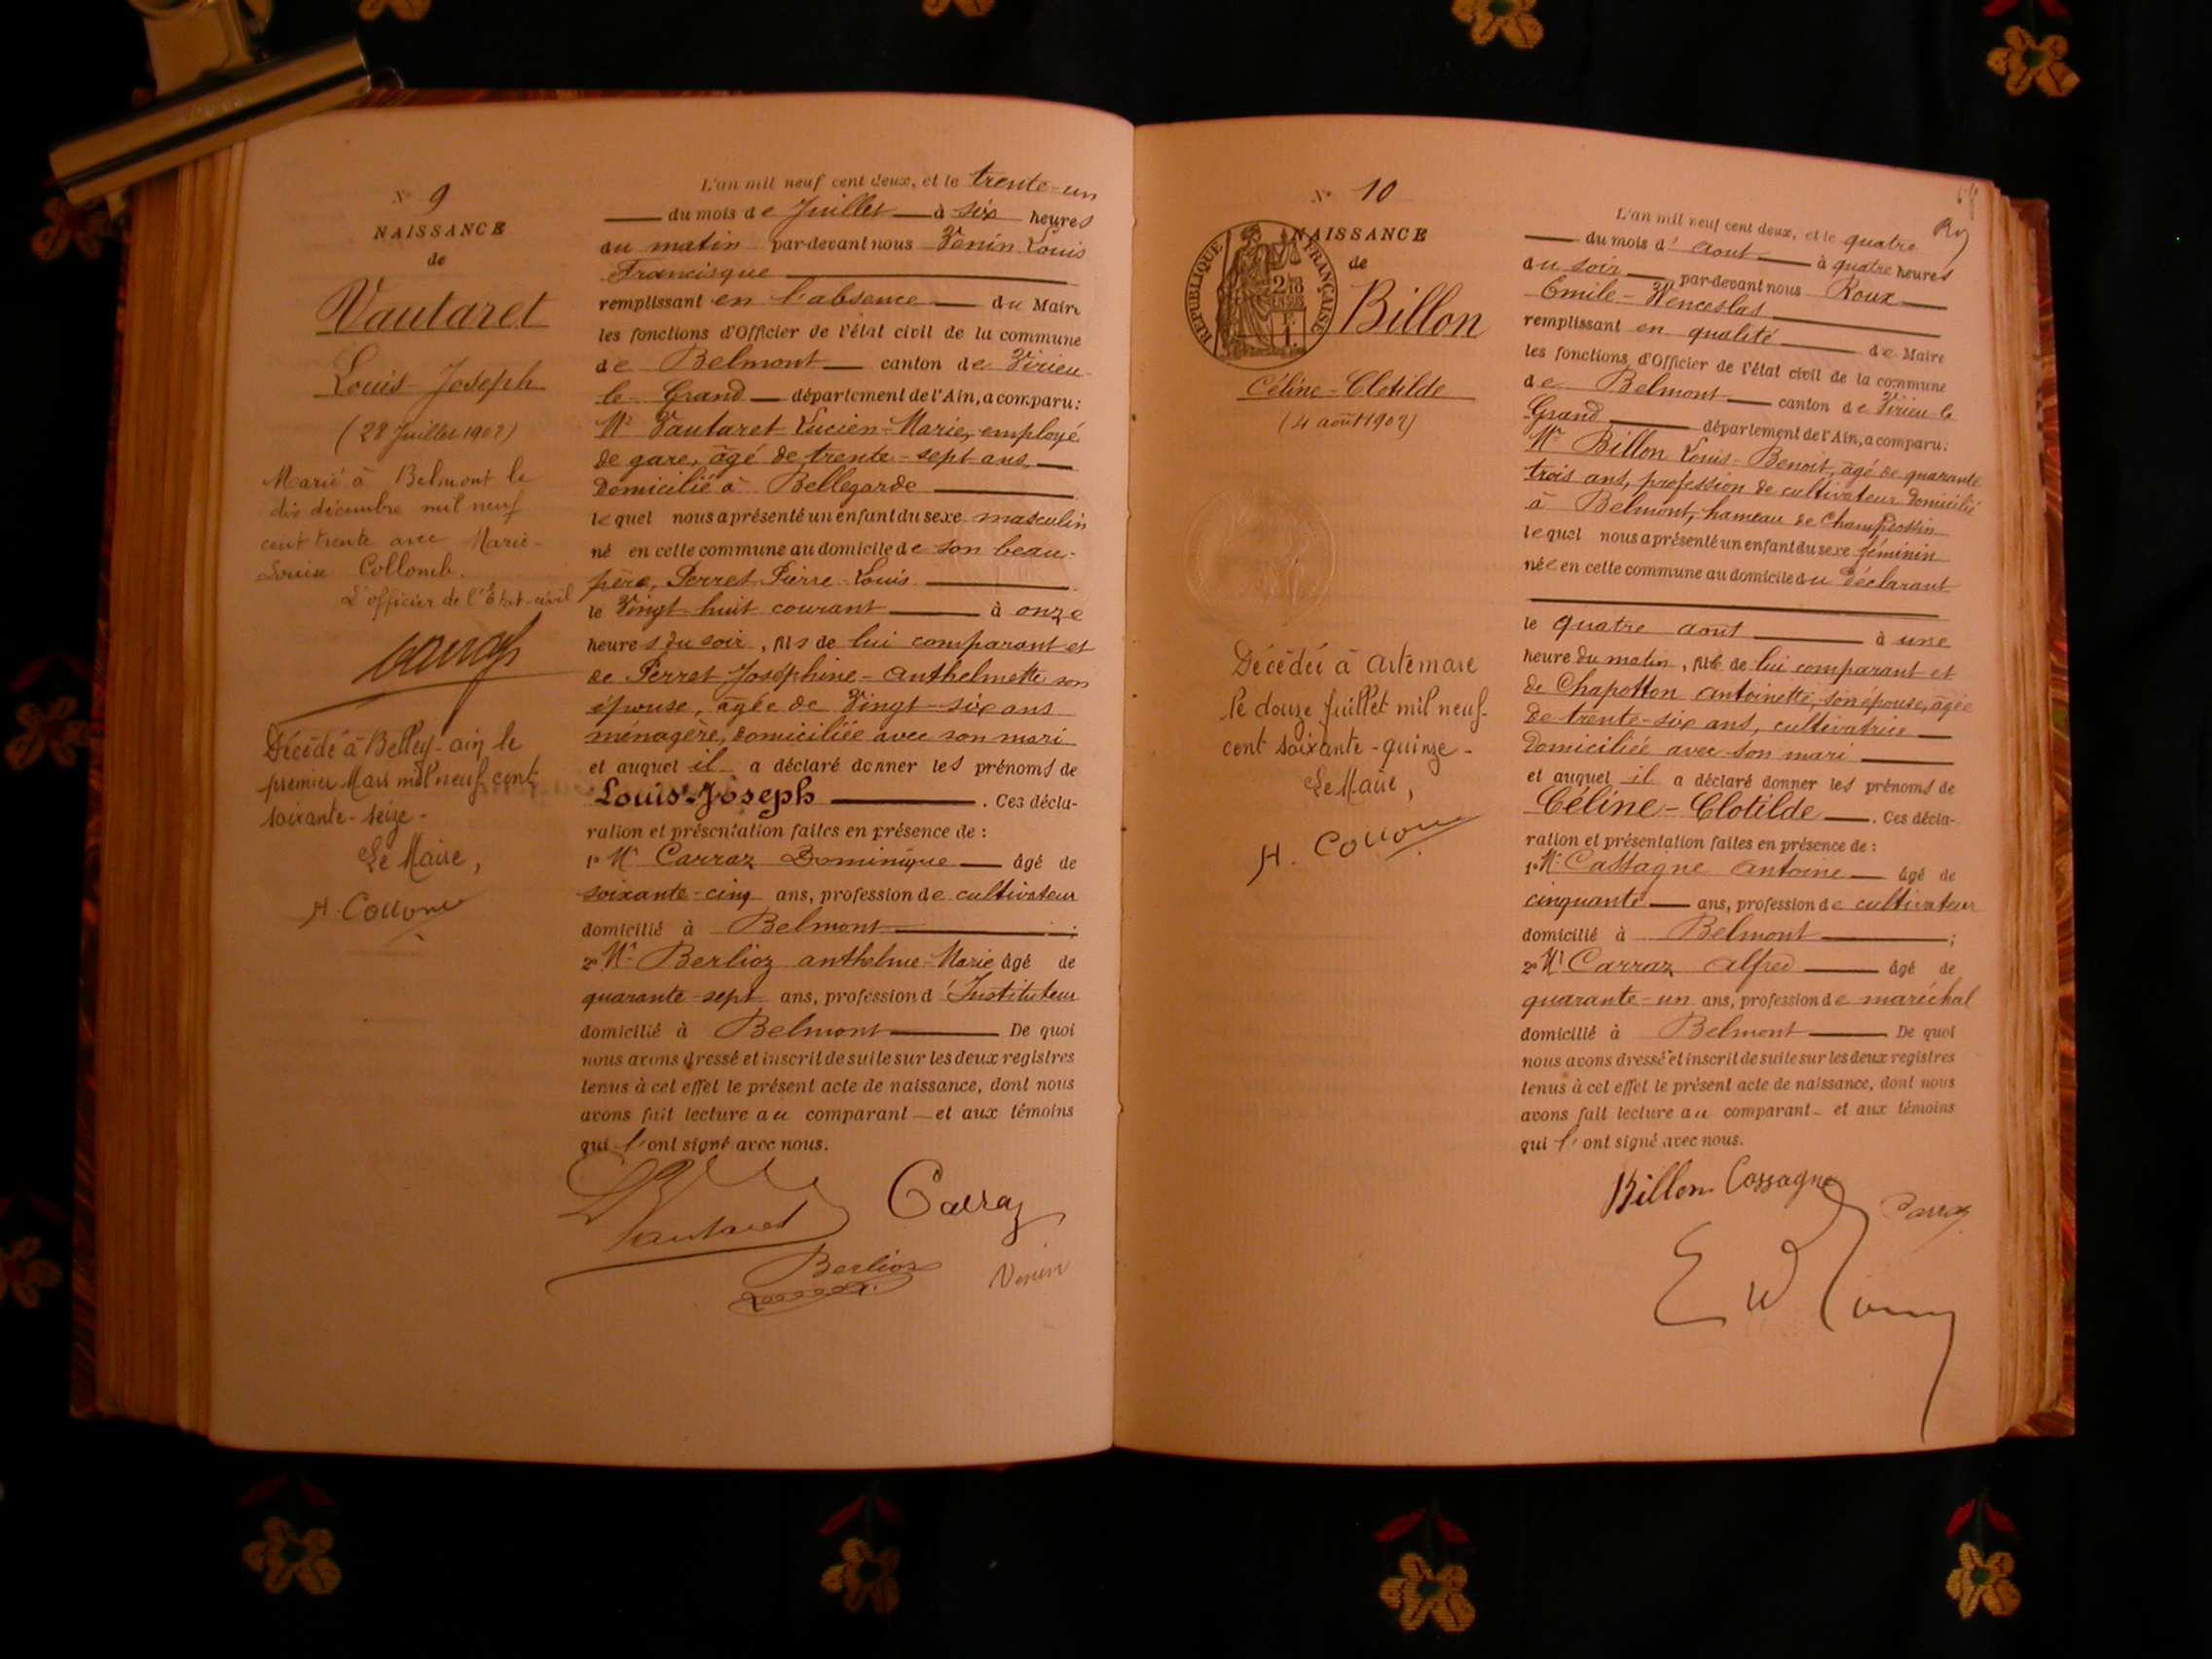 N° 9
NAISSANCE
de
Vautaret
Louis-Joseph
(28 Juillet 1902)
Marié à Belmont le
dix décembre mil neuf
cent trente avec Marie-
Louise Collomb.
L'officier de l'État-civil
Décédé à Belley-ain le
premier Mars mil neuf cent
soixante-seize-
Le Maire,
L'an mil neuf cent deux, et le trente-un
du mois de Juillet à six heures
du matin par-devant nous Venin Louis
Francisque
remplissant en l'absence du Maire
les fonctions d'Officier de l'état civil de la commune
de Belmont canton de Virieu
le Grand département de l'Ain, a comparu:
Mr Vautaret Lucien-Marie, employé
de gare, âgé de trente-sept ans,
domicilié à Bellegarde
lequel nous a présenté un enfant du sexe masculin
né en cette commune au domicile de son beau-
père, Perret Pierre-Louis
le vingt-huit courant à onze
heures du soir, fils de lui comparant et
de Perret Joséphine-Anthelmette son
épouse, âgée de vingt-six ans
ménagère, domiciliée avec son mari
et auquel il a déclaré donner les prénoms de
Louis-Joseph. Ces décla-
ration et présentation faites en présence de :
1° Mr Carraz Dominique âgé de
soixante-cinq ans, profession de cultivateur
domicilié à Belmont ;
2° Mr Berlioz anthelme-Marie âgé de
quarante-sept ans, profession d'Instituteur
domicilié à Belmont De quoi
nous avons dressé et inscrit de suite sur les deux registres
tenus à cet effet le présent acte de naissance, dont nous
avons fait lecture au comparant et aux témoins
qui l'ont signé avec nous.
Vautaret Carraz
Berlioz Venin
N° 10
NAISSANCE
de
RÉPUBLIQUE FRANÇAISE
Billon
Céline-Clotilde
(4 août 1902)
Décédée à Artemare
le douze juillet mil neuf-
cent soixante-quinze-
Le Maire,
L'an mil neuf cent deux, et le quatre
du mois d'août à quatre heures
du soir par-devant nous Roux
Emile-Wenceslas
remplissant en qualité de Maire
les fonctions d'Officier de l'état civil de la commune
de Belmont canton de Virieu le
Grand département de l'Ain, a comparu:
Mr Billon Louis-Benoit, âgé de quarante
trois ans, profession de cultivateur domicilié
à Belmont, hameau de
lequel nous a présenté un enfant du sexe féminin
née en cette commune au domicile du déclarant
le quatre août à une
heure du matin, fille de lui comparant et
de Chapotton Antoinette, son épouse, âgée
de trente-six ans, cultivatrice
domiciliée avec son mari
et auquel il a déclaré donner les prénoms de
Céline-Clotilde. Ces décla-
ration et présentation faites en présence de :
1° Mr Cassagne Antoine âgé de
cinquante ans, profession de cultivateur
domicilié à Belmont ;
2° Mr Carraz Alfred âgé de
quarante-un ans, profession de maréchal
domicilié à Belmont De quoi
nous avons dressé et inscrit de suite sur les deux registres
tenus à cet effet le présent acte de naissance, dont nous
avons fait lecture au comparant et aux témoins
qui l'ont signé avec nous.
Billon Cassagne
Carraz